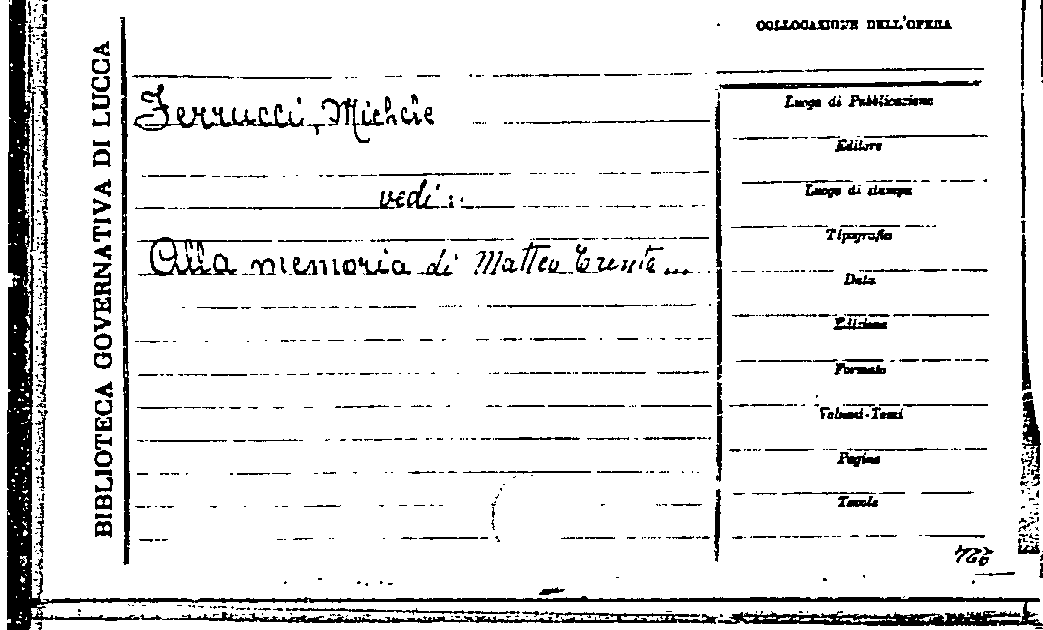 BIBLIOTECA GOVERNATIVA DI LUCCA
COLLOCAZIONE DELL'OPERA
Ferrucci, Michele
vedi:
Alla memoria di Matteo Trenta...
Luogo di Pubblicazione
Editore
Luogo di stampa
Tipografia
Data
Edizione
Formato
Volumi-Tomi
Pagine
Tavole